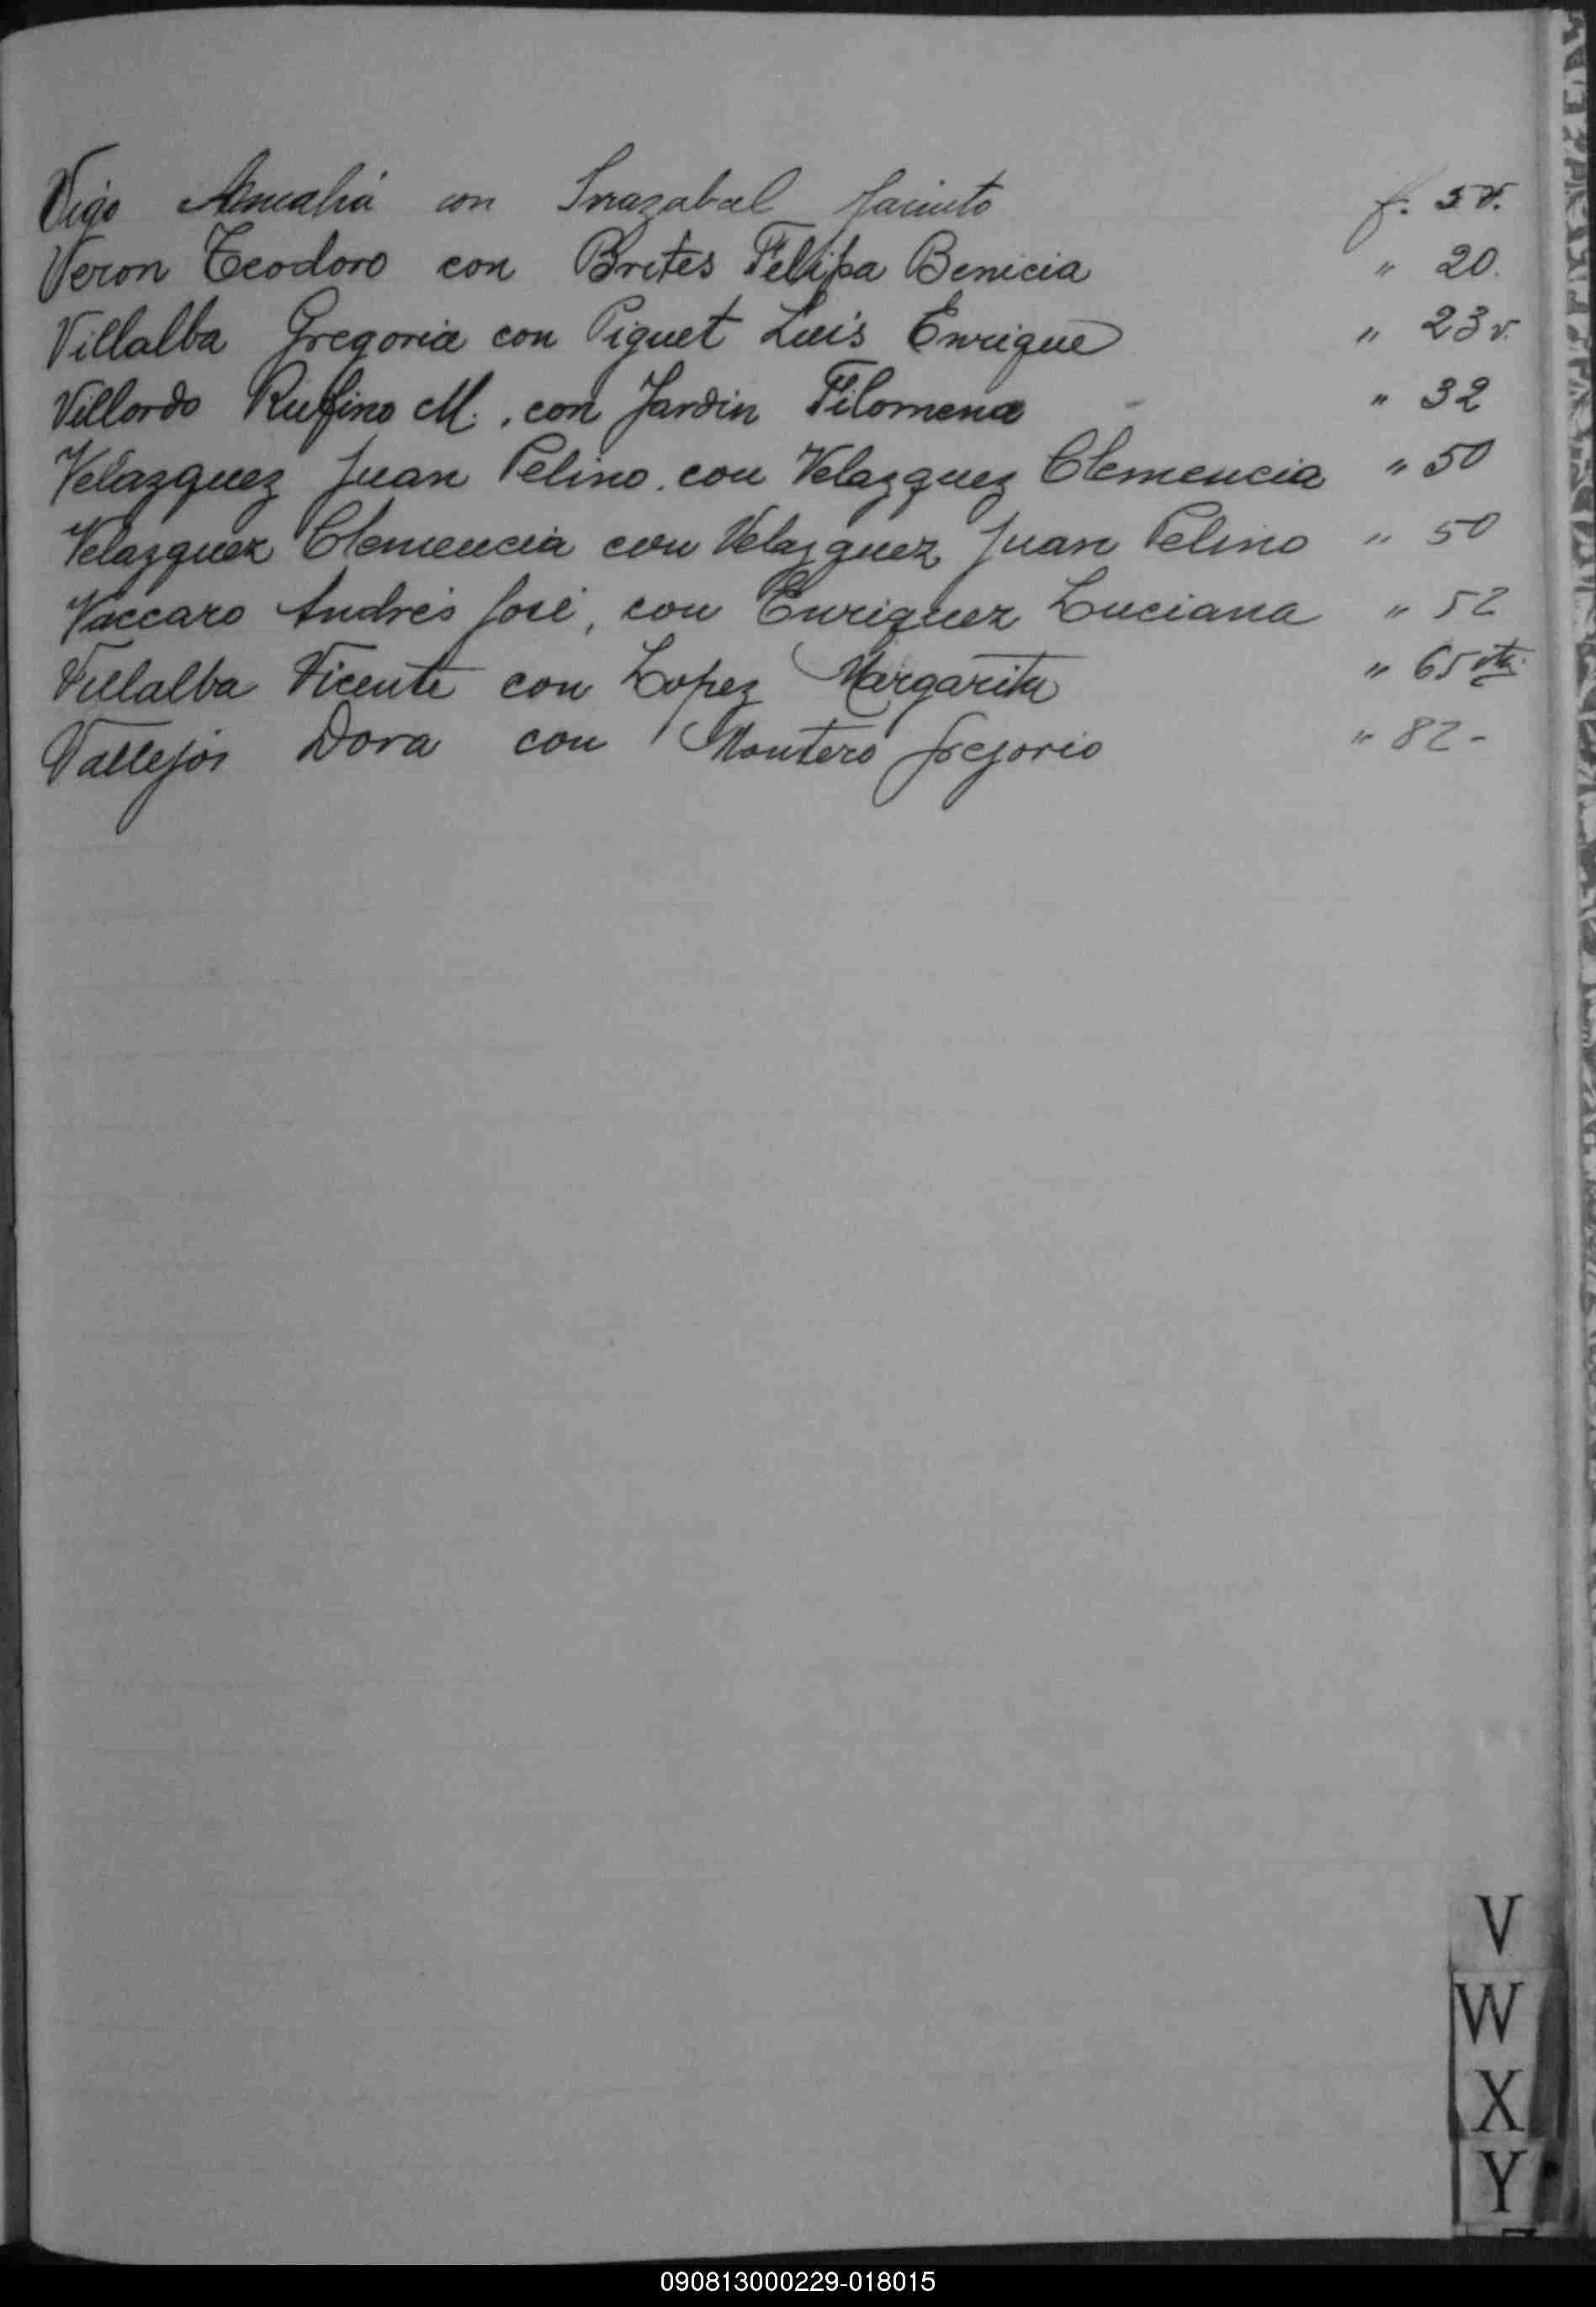 Vigo Amalia con Irrazabal Jacinto f. 5 v.
Veron Teodoro con Brites Felipa Benicia " 20.
Villalba Gregoria con Piquet Luis Enrique " 23 v.
Villordo Rufino M. con Jardin Filomena " 32
Velazquez Juan Pelino. con Velazquez Clemencia " 50
Velazquez Clemencia con Velazquez Juan Pelino " 50
Vaccaro Andrés José, con Enriquez Luciana " 52
Villalba Vicente con Lopez Margarita " 65 vta.
Vallejos Dora con Montero Gregorio " 82 -
V
W
X
Y
090813000229-018015